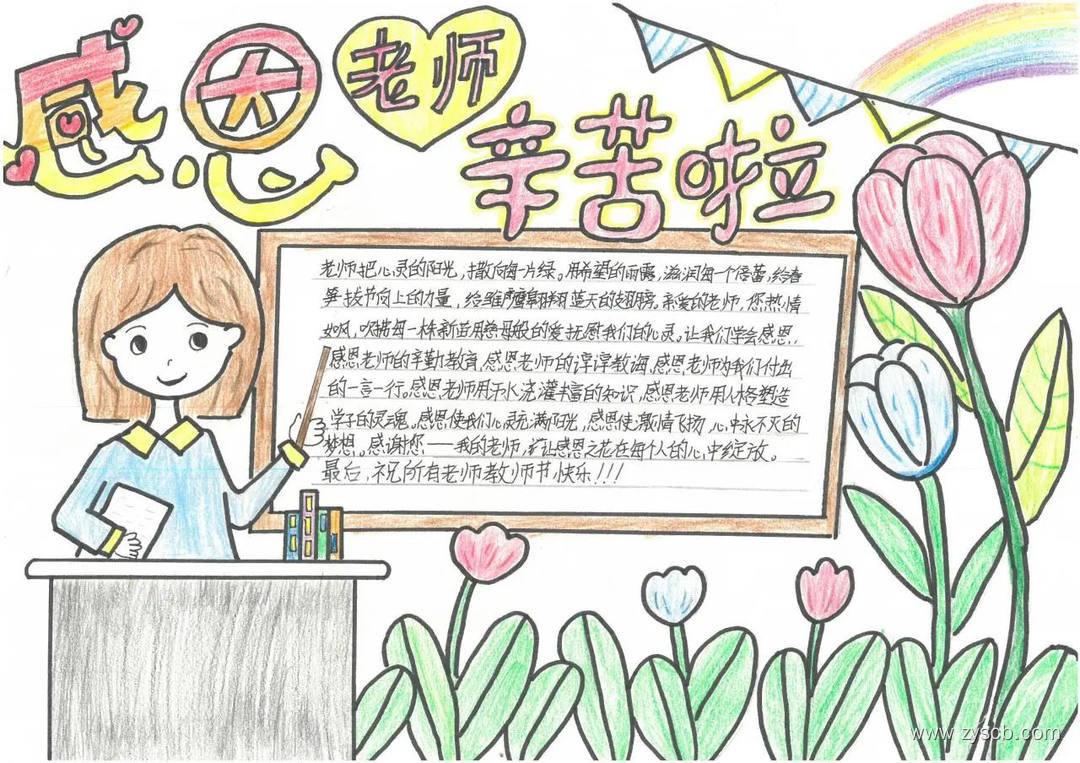 感恩
老师
辛苦啦
老师把心灵的阳光，撒向每一片绿。用希望的雨露，滋润每一个蓓蕾，给春
笋拔节向上的力量，给雏鹰翱翔蓝天的翅膀。亲爱的老师，您热情
如风，吹醒每一株新苗用慈母般的爱抚慰我们的心灵。让我们学会感恩，
感恩老师的辛勤教育，感恩老师的谆谆教诲，感恩老师为我们付出
的一言一行。感恩老师用汗水浇灌丰富的知识，感恩老师用人格塑造
学子的灵魂。感恩使我们心灵充满阳光，感恩使激情飞扬，心中永不灭的
梦想。感谢您——我的老师，让感恩之花在每个人的心中绽放。
最后，祝所有老师教师节快乐！！！
www.zyscb.com